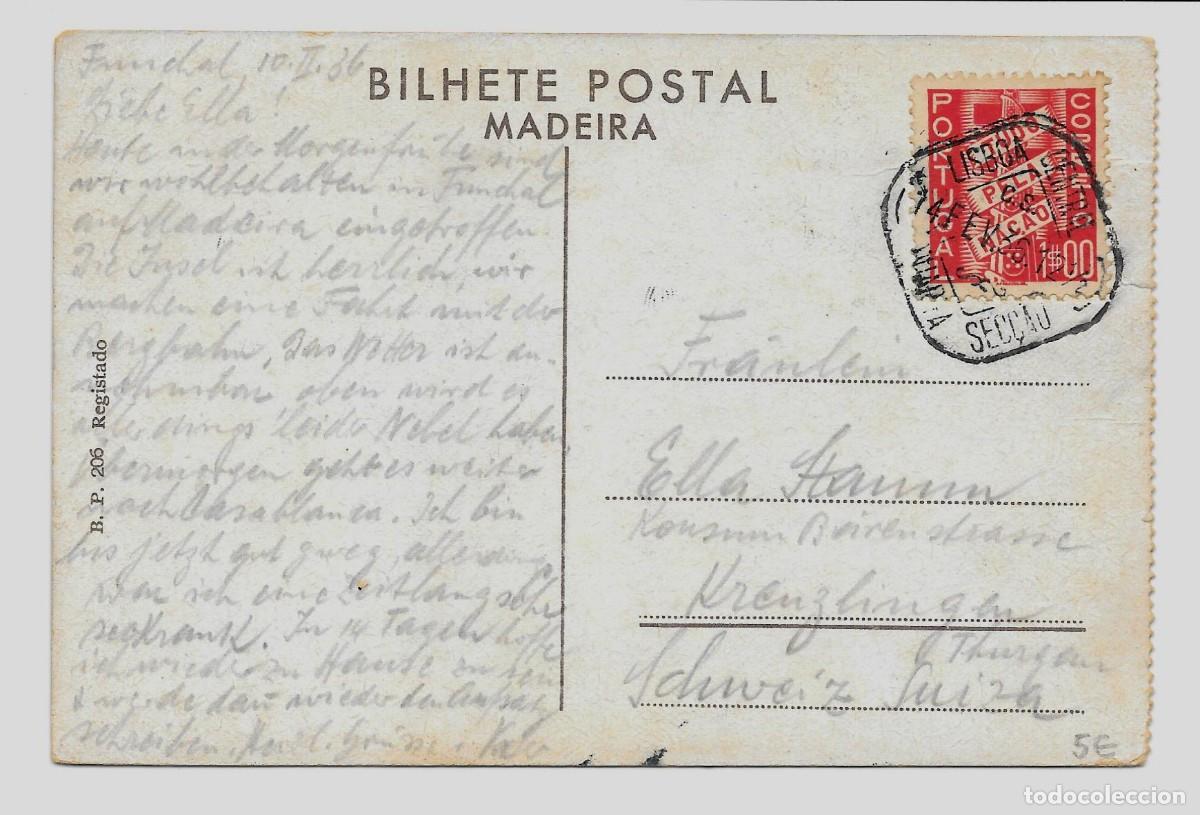 Funchal, 10.II.36
Liebe Ella!
Heute in der Morgenfrühe sind
wir wohlbehalten in Funchal
auf Madeira eingetroffen.
Die Insel ist herrlich, wir
machen eine Fahrt mit der
Bergbahn. Das Wetter ist
oben wird es
allerdings leider Nebel haben.
Übermorgen geht es weiter
nach Casablanca. Ich bin
bis jetzt gut zweg, allerdings
war ich eine Zeitlang sehr
seekrank. In 14 Tagen hoffe
ich wieder zu Hause zu sein
& werde dann wieder den Aufsatz
schreiben. Herzl. Grüsse
BILHETE POSTAL
MADEIRA
B. P. 206 Registado
PORTUGAL
CORREIO
TUDO
PELA
NAÇÃO
1$00
LISBOA
CENTRAL
14 FEV 36
SECÇÃO
Fräulein
Ella Hamm
Konsum Bärenstrasse
Kreuzlingen
Thurgau
Schweiz Suiza
5€
todocoleccion